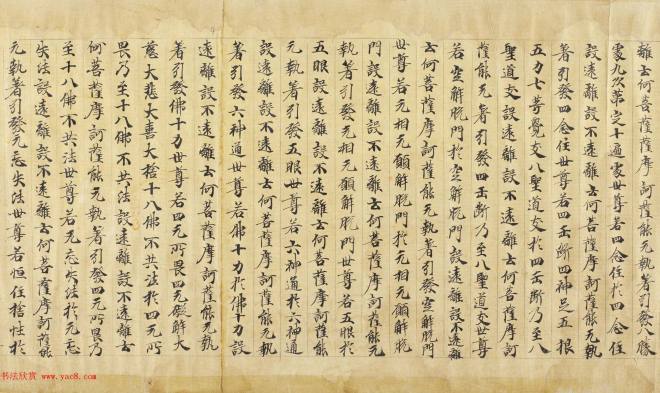 離云何菩薩摩訶薩能无執著引發八勝
處九次第定十遍處世尊若四念住於四念住
設遠離設不遠離云何菩薩摩訶薩能无執
著引發四念住世尊若四正斷四神足五根
五力七等覺支八聖道支於四正斷乃至八
聖道支設遠離設不遠離云何菩薩摩訶
薩能无執著引發四正斷乃至八聖道支世尊
若空解脫門於空解脫門設遠離設不遠離
云何菩薩摩訶薩能无執著引發空解脫門
世尊若无相无願解脫門於无相无願解脫
門設遠離設不遠離云何菩薩摩訶薩能无
執著引發无相无願解脫門世尊若五眼於
五眼設遠離設不遠離云何菩薩摩訶薩能
无執著引發五眼世尊若六神通於六神通
設遠離設不遠離云何菩薩摩訶薩能无執
著引發六神通世尊若佛十力於佛十力設
遠離設不遠離云何菩薩摩訶薩能无執
著引發佛十力世尊若四无所畏四无礙解大
慈大悲大喜大捨十八佛不共法於四无所
畏乃至十八佛不共法設遠離設不遠離云
何菩薩摩訶薩能无執著引發四无所畏乃
至十八佛不共法世尊若无忘失法於无忘
失法設遠離設不遠離云何菩薩摩訶薩能
无執著引發无忘失法世尊若恒住捨性於
书法欣赏
www.yac8.com